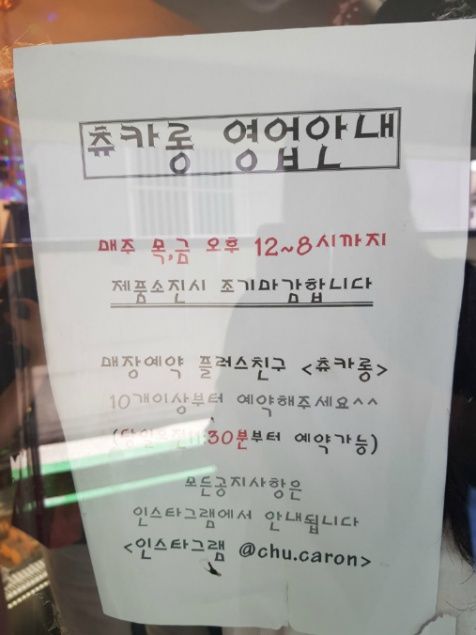 츄카롱 영업안내
매주 목,금 오후 12~8시까지
제품소진시 조기마감합니다
매장예약 플러스친구 <츄카롱>
10개이상부터 예약해주세요^^
(당일오전11:30분부터 예약가능)
모든공지사항은
인스타그램에서 안내됩니다
<인스타그램 @chu.caron>